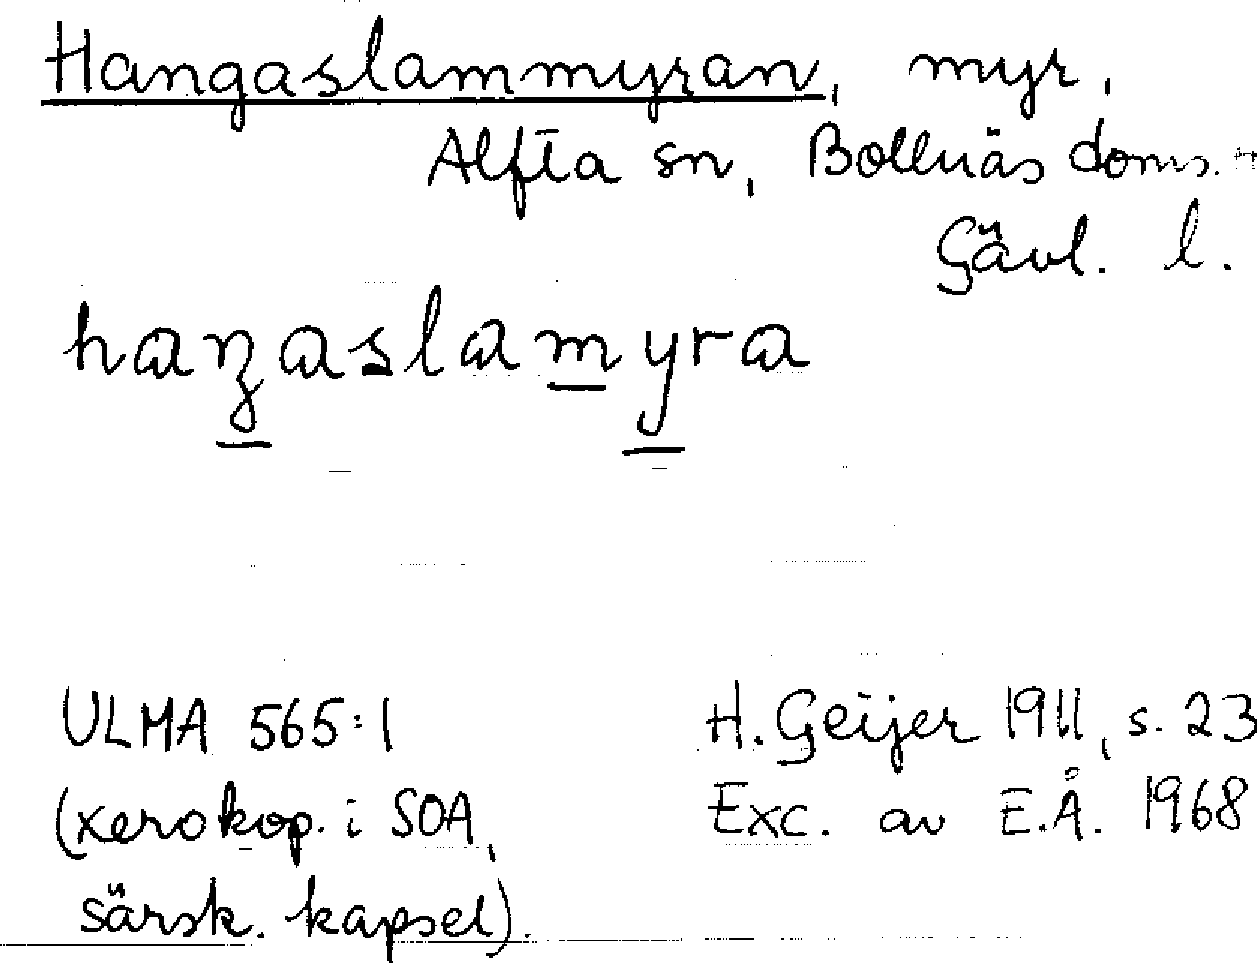 Hangaslammyran, myr,
Alfta sn, Bollnäs doms.
Gävl. l.
haŋaslamyra
ULMA 565:1
(xerokop. i SOA,
särsk. kapsel).
H. Geijer 1911, s. 23
Exc. av E.Å. 1968